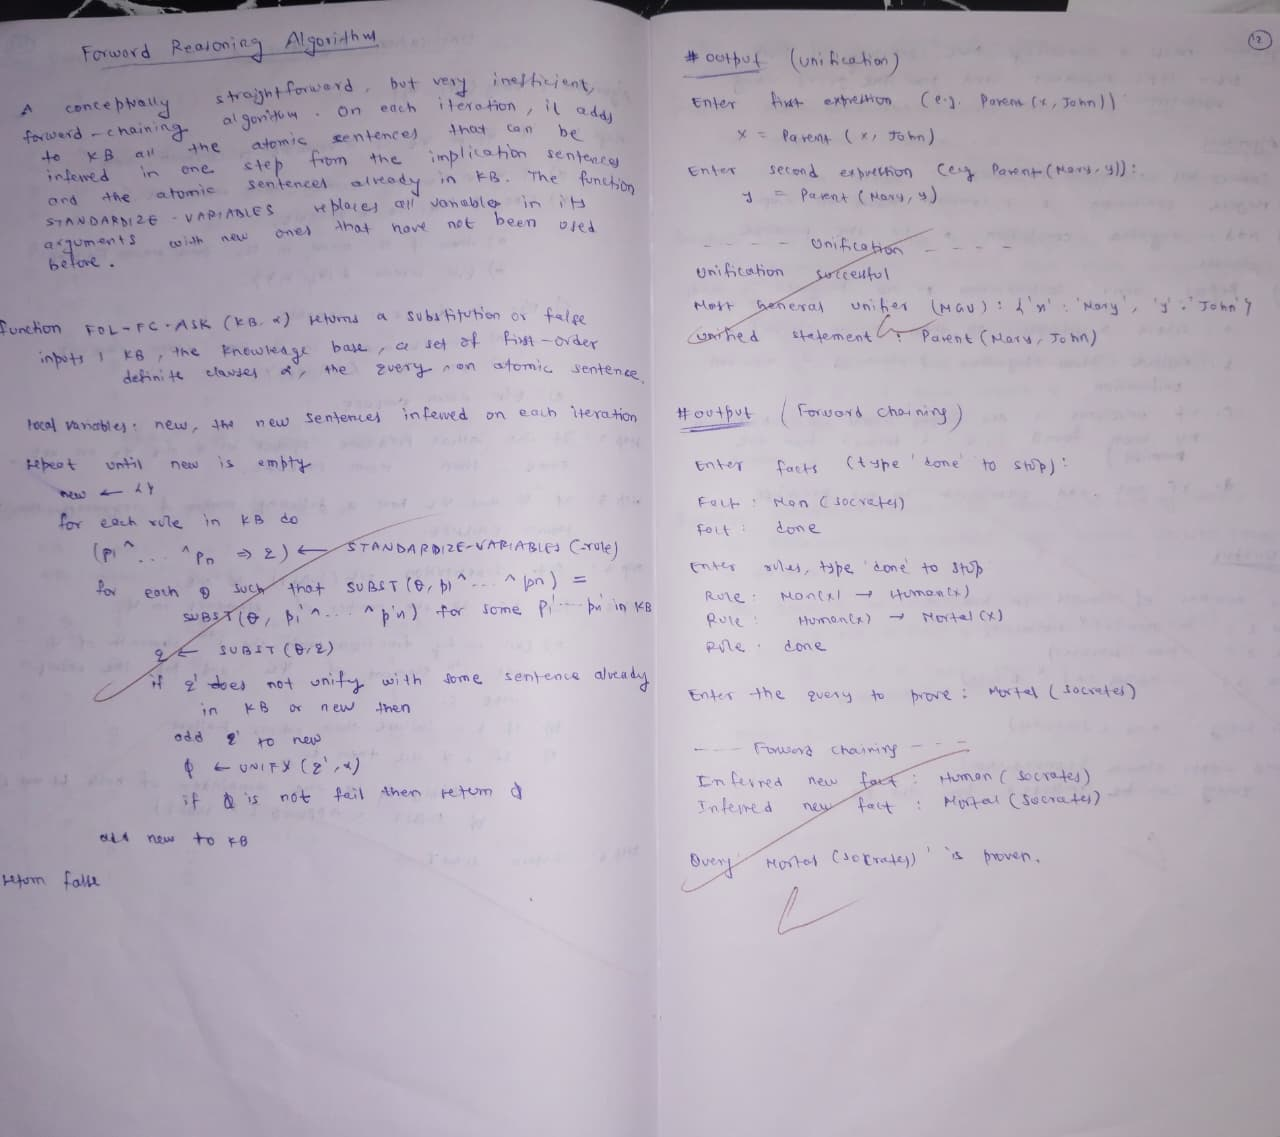 Forward Reasoning Algorithm
A conceptually straightforward, but very inefficient,
forward-chaining algorithm. On each iteration, it adds
to KB all the atomic sentences that can be
inferred in one step from the implication sentences
and the atomic sentences already in KB. The function
STANDARDIZE-VARIABLES replaces all variables in its
arguments with new ones that have not been used
before.
function FOL-FC-ASK (KB, α) returns a substitution or false
inputs: KB, the knowledge base, a set of first-order
definite clauses α, the query, an atomic sentence.
local variables: new, the new sentences inferred on each iteration
repeat until new is empty
new ← { }
for each rule in KB do
(p1 ^ ... ^ pn ⇒ q) ← STANDARDIZE-VARIABLES (rule)
for each θ such that SUBST (θ, p1 ^ ... ^ pn) =
SUBST (θ, p1' ^ ... ^ p'n) for some p1' ... pn' in KB
q' ← SUBST (θ, q)
if q' does not unify with some sentence already
in KB or new then
add q' to new
φ ← UNIFY (q', α)
if φ is not fail then return φ
add new to KB
return false
12
# output (unification)
Enter first expression (e.g. Parent (x, John))
x = Parent (x, John)
Enter second expression (eg Parent (Mary, y)):
y = Parent (Mary, y)
---- Unification ----
Unification successful
Most General unifier (MGU) : {'x' : 'Mary', 'y' : 'John'}
unified statement : Parent (Mary, John)
# output (Forward chaining)
Enter facts (type 'done' to stop):
Fact : Man (Socrates)
Fact : done
Enter rules, type 'done' to stop
Rule : Man(x) → Human(x)
Rule : Human(x) → Mortal (x)
Rule : done
Enter the query to prove : Mortal (Socrates)
---- Forward chaining ---
Inferred new fact : Human (Socrates)
Inferred new fact : Mortal (Socrates)
Query Mortal (Socrates) ' is proven.